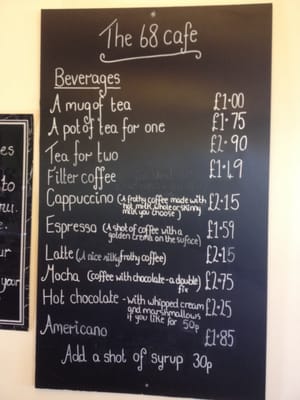 The 68 cafe
Beverages
A mug of tea £1.00
A pot of tea for one £1.75
Tea for two £2.90
Filter coffee £1.49
Cappuccino (A frothy coffee made with £2.15
hot milk, whole or skinny
milk you choose)
Espresso (A shot of coffee with a £1.59
golden crema on the suface)
Latte (A nice silky frothy coffee) £2.15
Mocha (coffee with chocolate - a double £2.75
fix)
Hot chocolate - with whipped cream £2.25
and marshmallows
if you like for 50p
Americano £1.85
Add a shot of syrup 30p
es
to
nu.
ur
your